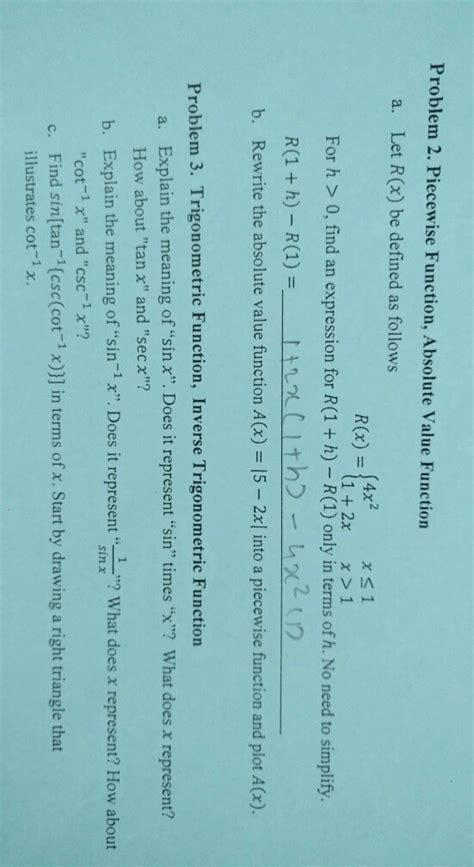 Problem 2. Piecewise Function, Absolute Value Function
a. Let R(x) be defined as follows
R(x) = { 4x² x ≤ 1
1 + 2x x > 1
For h > 0, find an expression for R(1 + h) − R(1) only in terms of h. No need to simplify.
R(1 + h) − R(1) = 1+2x(1+h) - 4x²(1)
b. Rewrite the absolute value function A(x) = |5 − 2x| into a piecewise function and plot A(x).
Problem 3. Trigonometric Function, Inverse Trigonometric Function
a. Explain the meaning of “sin x”. Does it represent “sin” times “x”? What does x represent?
How about "tan x" and "sec x"?
b. Explain the meaning of “sin⁻¹ x”. Does it represent “1/sin x”? What does x represent? How about
"cot⁻¹ x" and "csc⁻¹ x"?
c. Find sin[tan⁻¹{csc(cot⁻¹ x)}] in terms of x. Start by drawing a right triangle that
illustrates cot⁻¹ x.